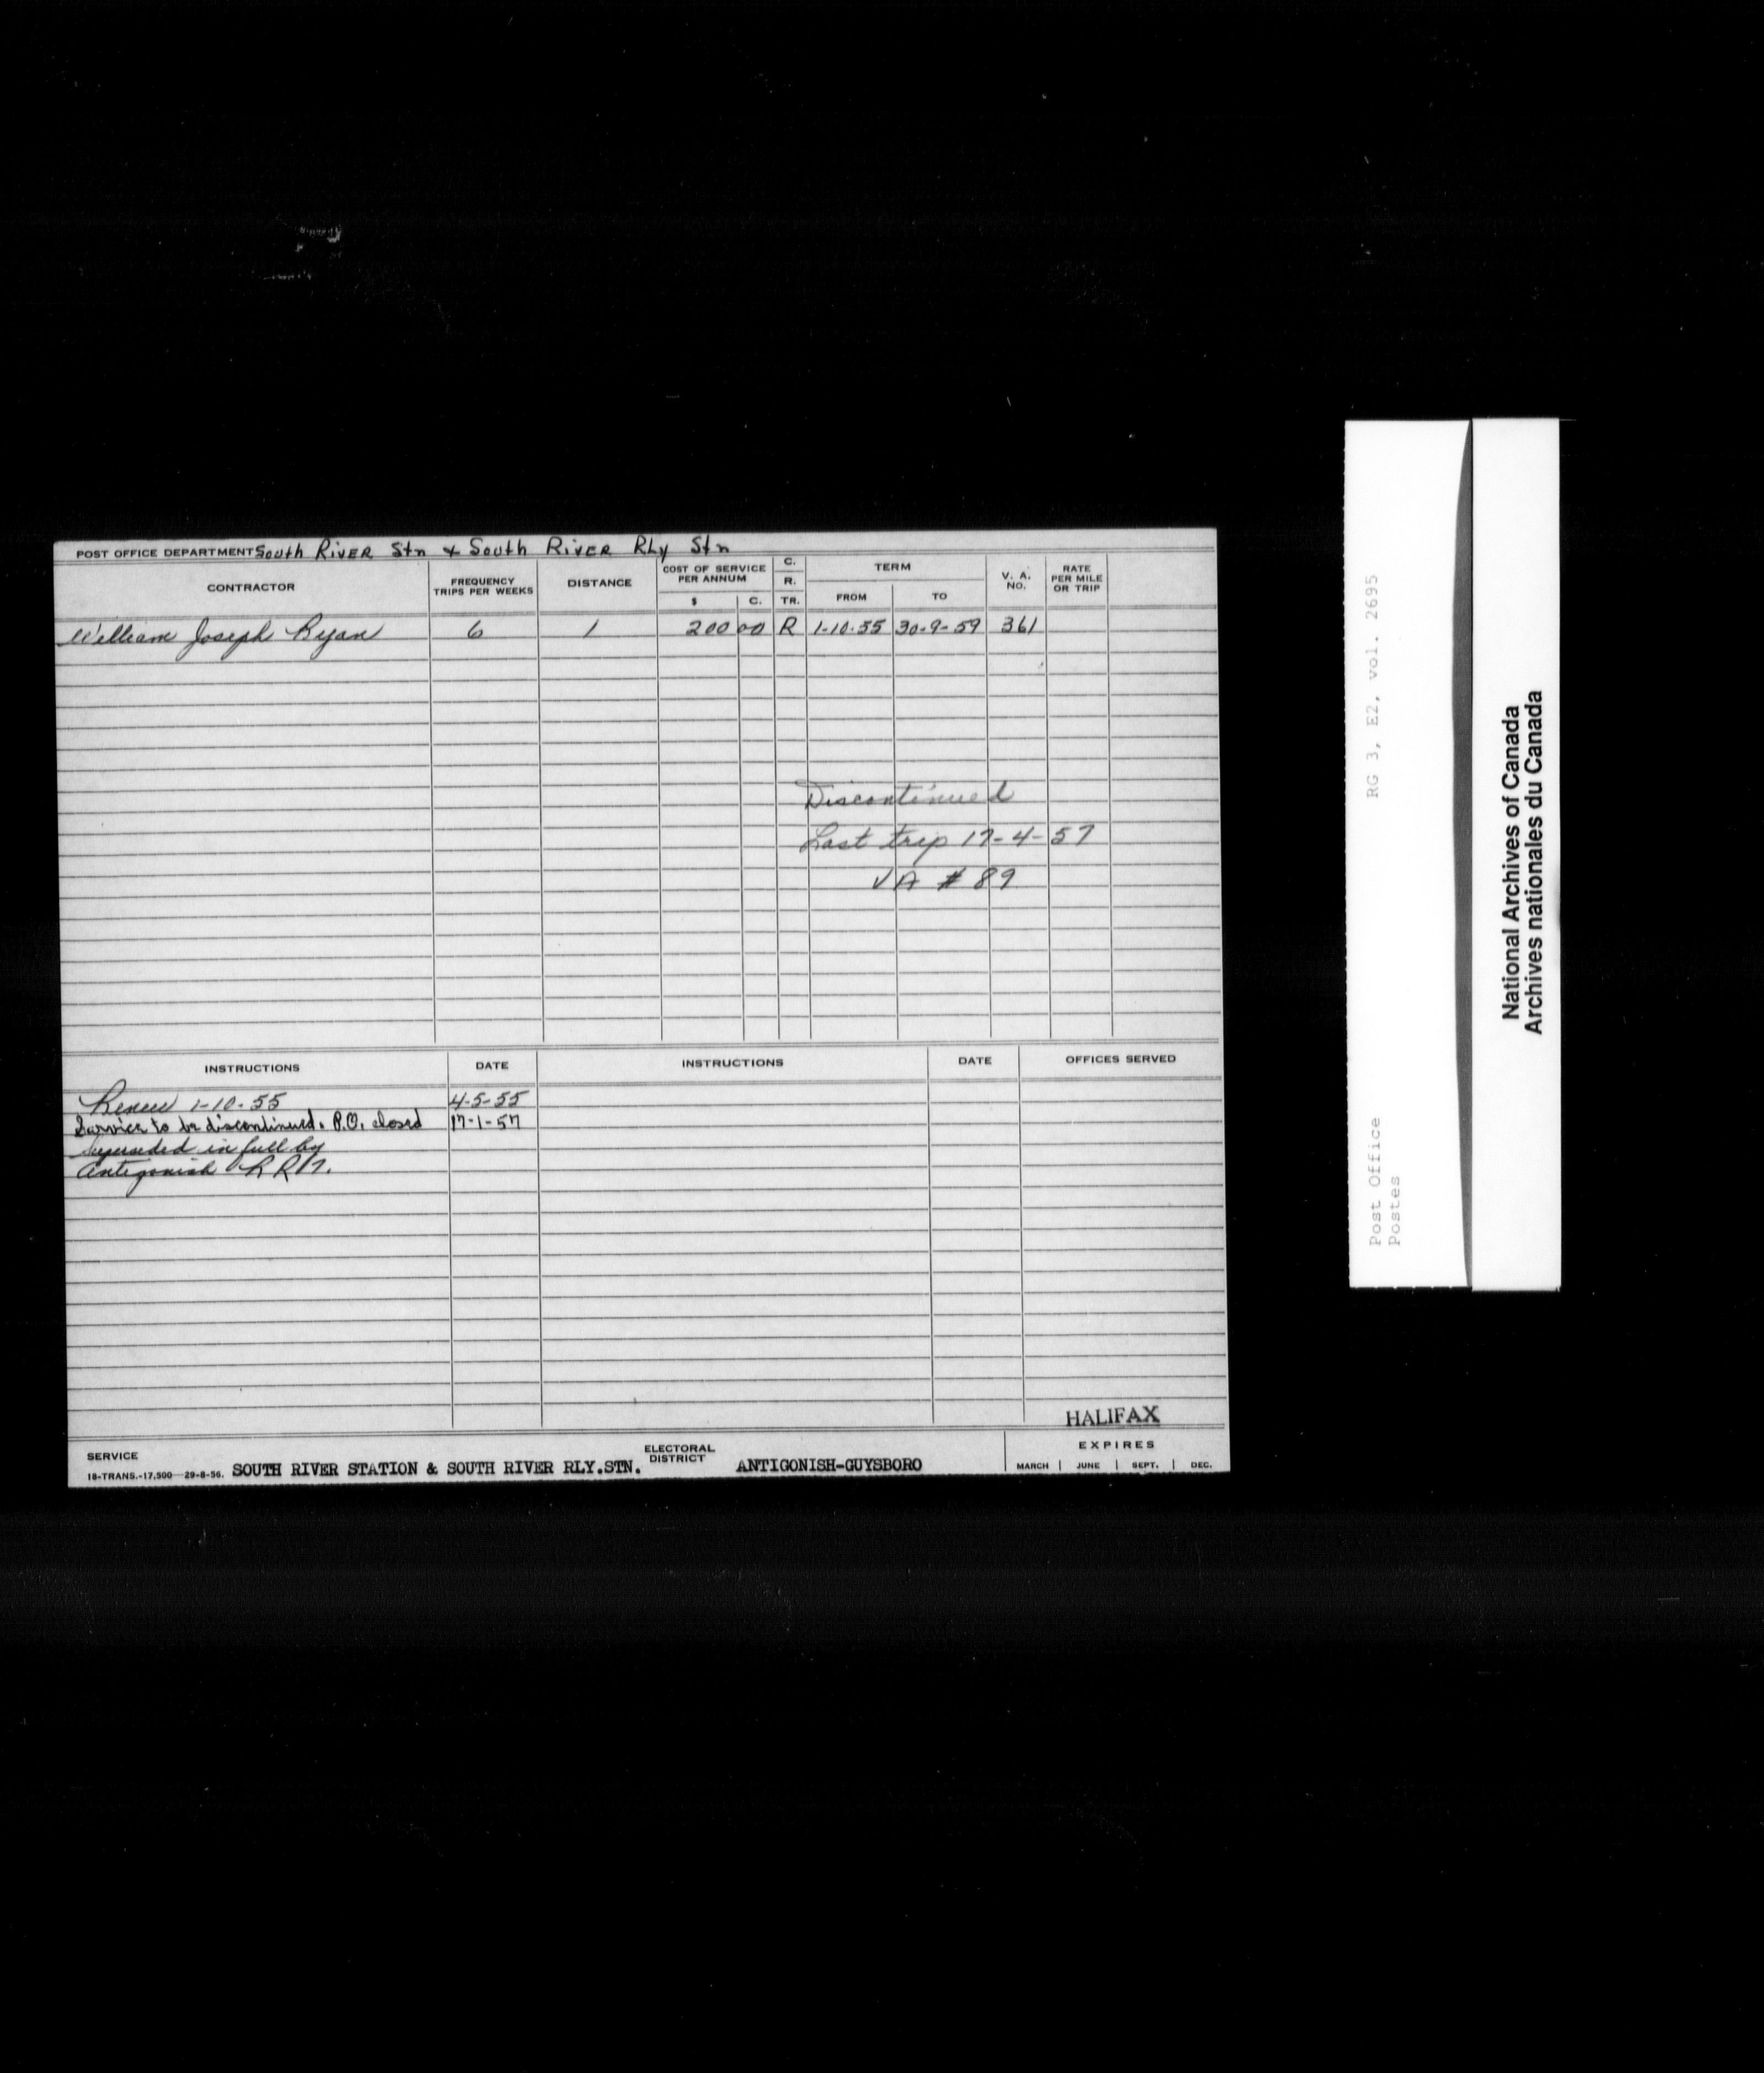 POST OFFICE DEPARTMENT South River Stn & South River Rly Stn
CONTRACTOR FREQUENCY TRIPS PER WEEKS DISTANCE COST OF SERVICE PER ANNUM $ C. C. R. TR. TERM FROM TO V. A. NO. RATE PER MILE OR TRIP
William Joseph Ryan 6 1 200 00 R 1-10-55 30-9-59 361
Discontinued
Last trip 17-4-57
VA # 89
INSTRUCTIONS DATE INSTRUCTIONS DATE OFFICES SERVED
Renew 1-10-55 4-5-55
Service to be discontinued. P.O. closed 17-1-57
Superseded in full by
Antigonish
HALIFAX
SERVICE
18-TRANS.-17,500—29-8-56. SOUTH RIVER STATION & SOUTH RIVER RLY.STN. ELECTORAL DISTRICT ANTIGONISH-GUYSBORO
EXPIRES
MARCH | JUNE | SEPT. | DEC.
RG 3, E2, vol. 2695
Post Office
Postes
National Archives of Canada
Archives nationales du Canada